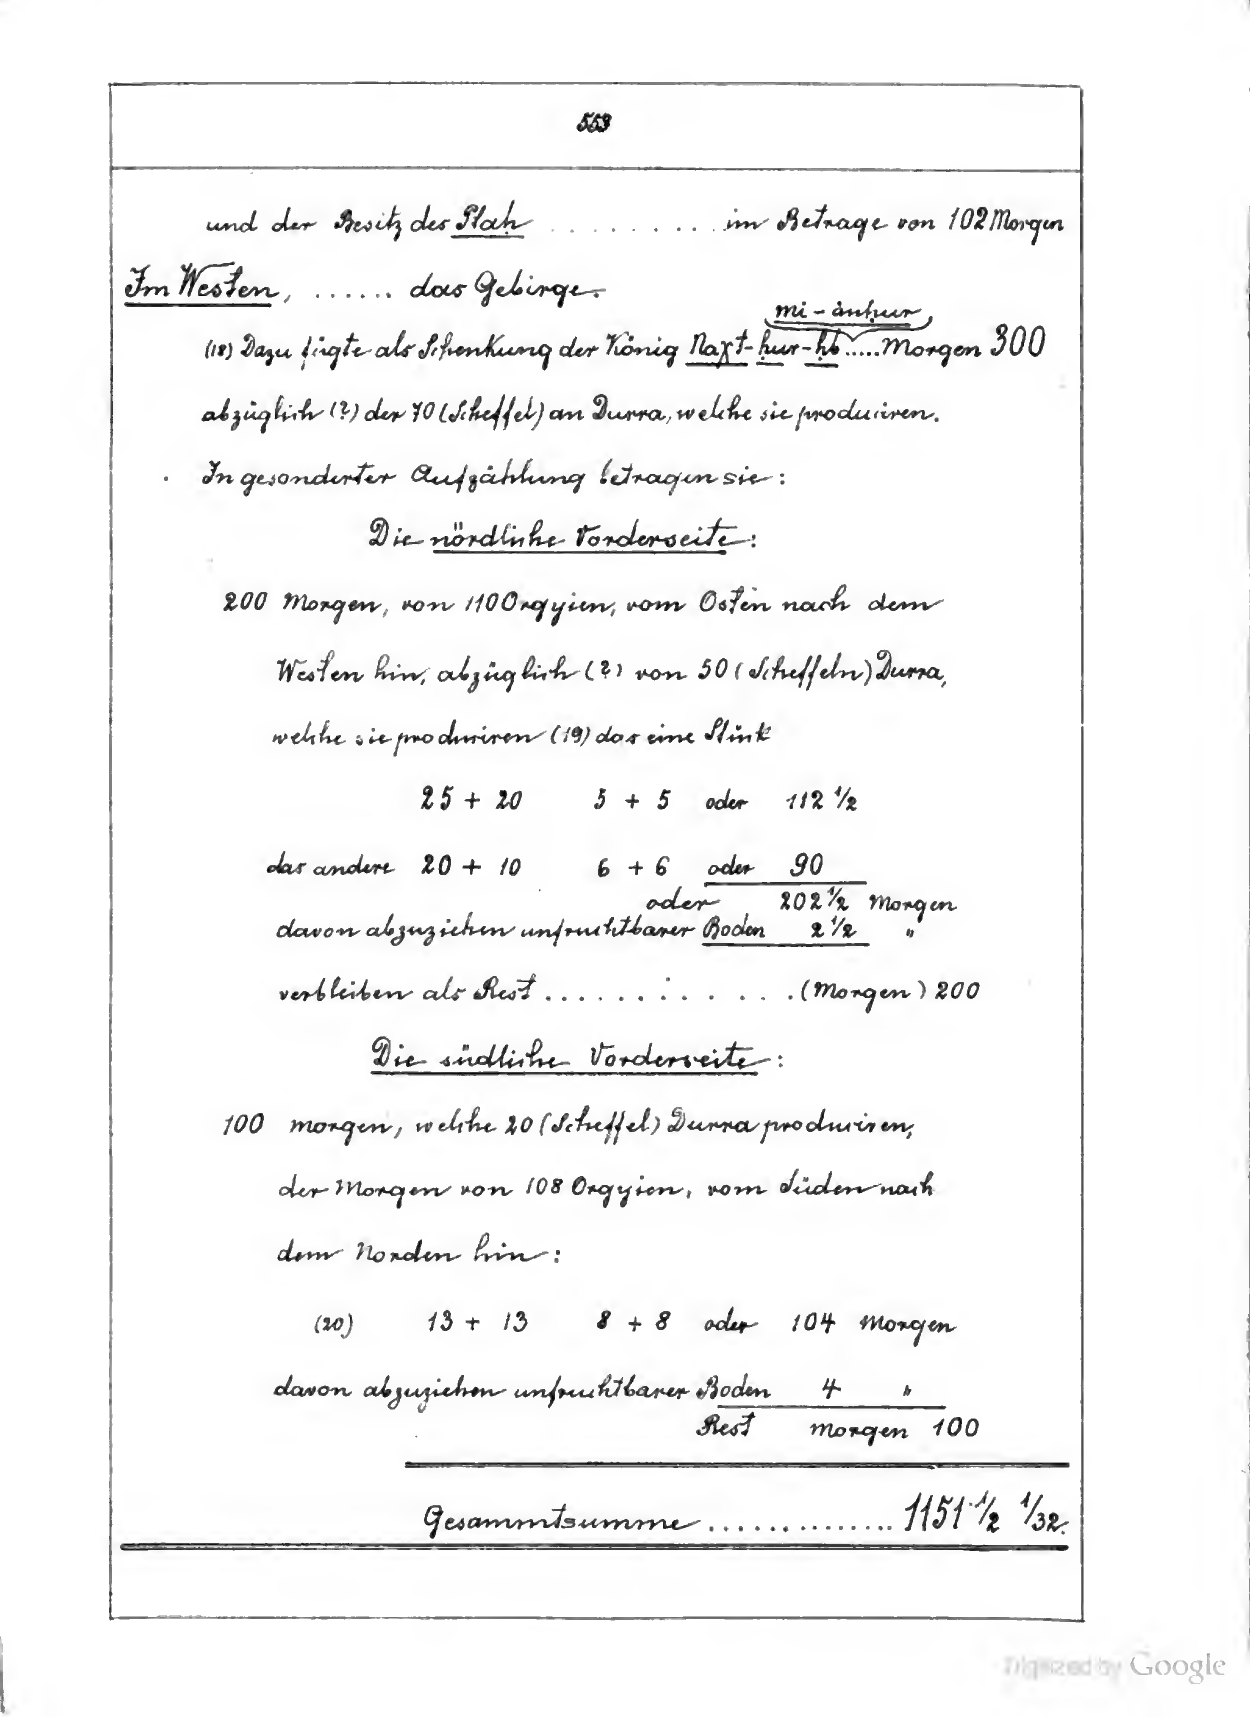 553
und der Besitz des Ptah .......... im Betrage von 102 Morgen
Im Westen, ...... das Gebirge.
mi-ànhur
(18) Dazu fügte als Schenkung der König Naχt-ḥur-ḥb ..... Morgen 300
abzüglich (?) der 70 (Scheffel) an Durra, welche sie produciren.
In gesonderter Aufzählung betragen sie:
Die nördliche Vorderseite:
200 Morgen, von 110 Orgyien, vom Osten nach dem
Westen hin, abzüglich (?) von 50 (Scheffeln) Durra,
welche sie produciren (19) das eine Stück
25 + 20 5 + 5 oder 112 1/2
das andere 20 + 10 6 + 6 oder 90
oder 202 1/2 Morgen
davon abzuziehen unfruchtbarer Boden 2 1/2 "
verbleiben als Rest ............. (Morgen) 200
Die südliche Vorderseite:
100 Morgen, welche 20 (Scheffel) Durra produciren,
der Morgen von 108 Orgyien, vom Süden nach
dem Norden hin:
(20) 13 + 13 8 + 8 oder 104 Morgen
davon abzuziehen unfruchtbarer Boden 4 "
Rest Morgen 100
Gesammtsumme ............... 1151 1/2 1/32.
Digitized by Google